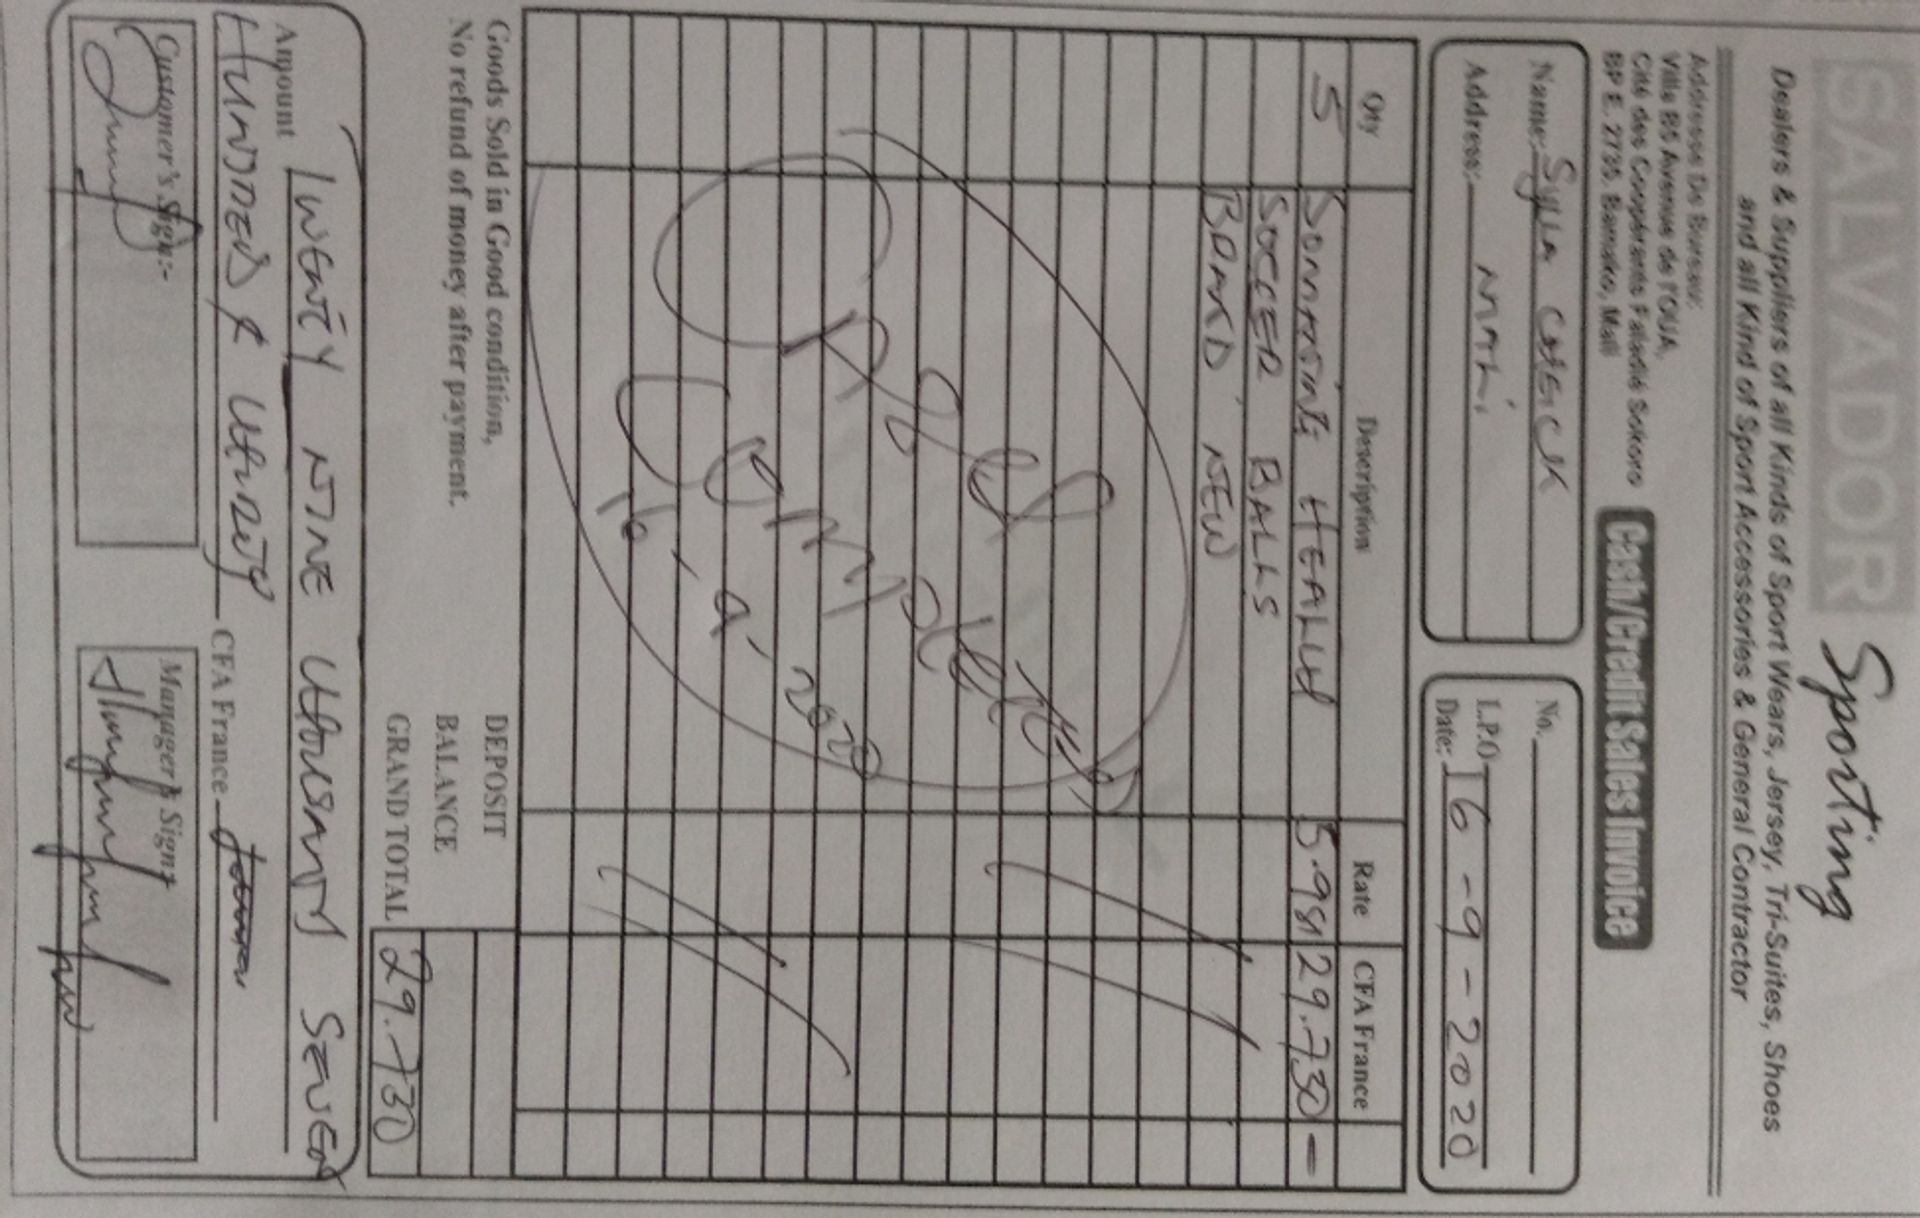 SALVADOR Sporting
Dealers & Suppliers of all Kinds of Sport Wears, Jersey, Tri-Suites, Shoes
and all Kind of Sport Accessories & General Contractor
Addresse De Bureau:
Villa B5 Avenue de l'OUA,
Cité des Coopérants Faladié Sokoro
BP E. 2735, Bamako, Mali
Cash/Credit Sales Invoice
Name: Sylla Cheick
Address:
No.
L.P.O
Date: 16-9-2020
Qty Description Rate CFA France
5 HEAVY 29.730 -
SOCCER BALLS
BRAND NEW
16-9-2020
Goods Sold in Good condition,
No refund of money after payment.
DEPOSIT
BALANCE
GRAND TOTAL 29.730
Amount TWENTY NINE THOUSAND SEVEN
HUNDRED & THIRTY CFA France
Customer's Sign:-
Manager's Sign: